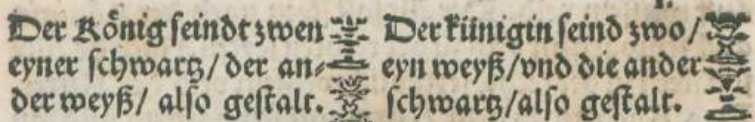 Der Koͤnig ſeindt zwen
eyner ſchwartz/ der an⸗
der weyß/ alſo geſtalt.
Der künigin ſeind zwo/
eyn weyß/vnd die ander
ſchwartz/alſo geſtalt.